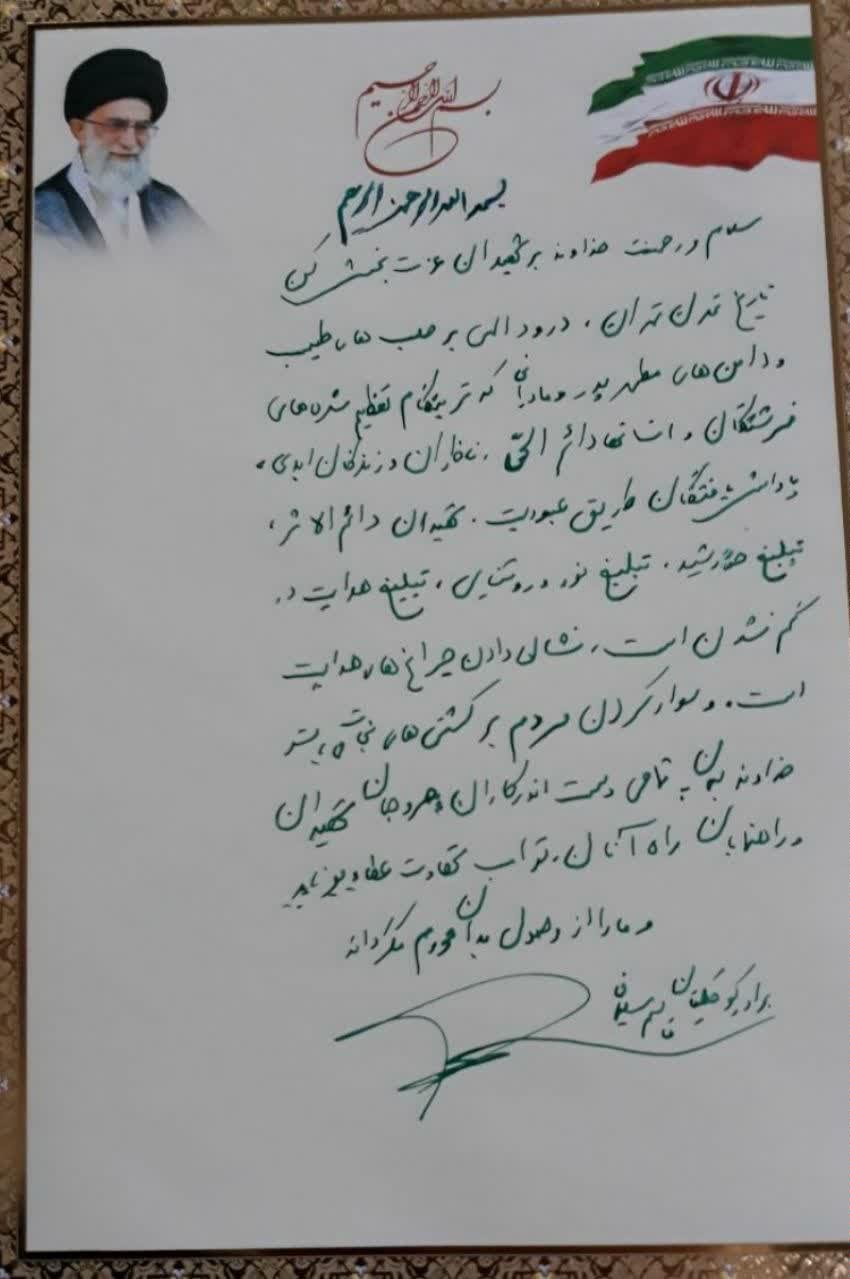 بسم الله الرحمن الرحیم
بسمه الله الرحمن الرحیم
سلام و رحمت خداوند بر شهیدان عزت بخش کن
تاریخ تمدن تهران، درود الهی بر صلب های طیب
و دامن های مطهر پدر و مادرانی که تربیتگاه تعظیم شده های
فرشتگان و انسانها دائم الحی، نافاران و زندگان ابدی،
پاداش یافتگان طریق عبودیت. شهیدان دائم الاثر،
تبلیغ خورشید، تبلیغ نور و روشنایی، تبلیغ هدایت در
گم نشدن است، نشانی دادن چراغ های هدایت
است. و سوار کردن مردم بر کشتی های نجات بشر
خداوند به تمامی دست اندرکاران شهیدان
و راهنمایان راه آنان، ثواب شهادت عطا بفرماید
و ما را از وصول بدان محروم مگرداند
برادر کوچکتان قاسم سلیمانی